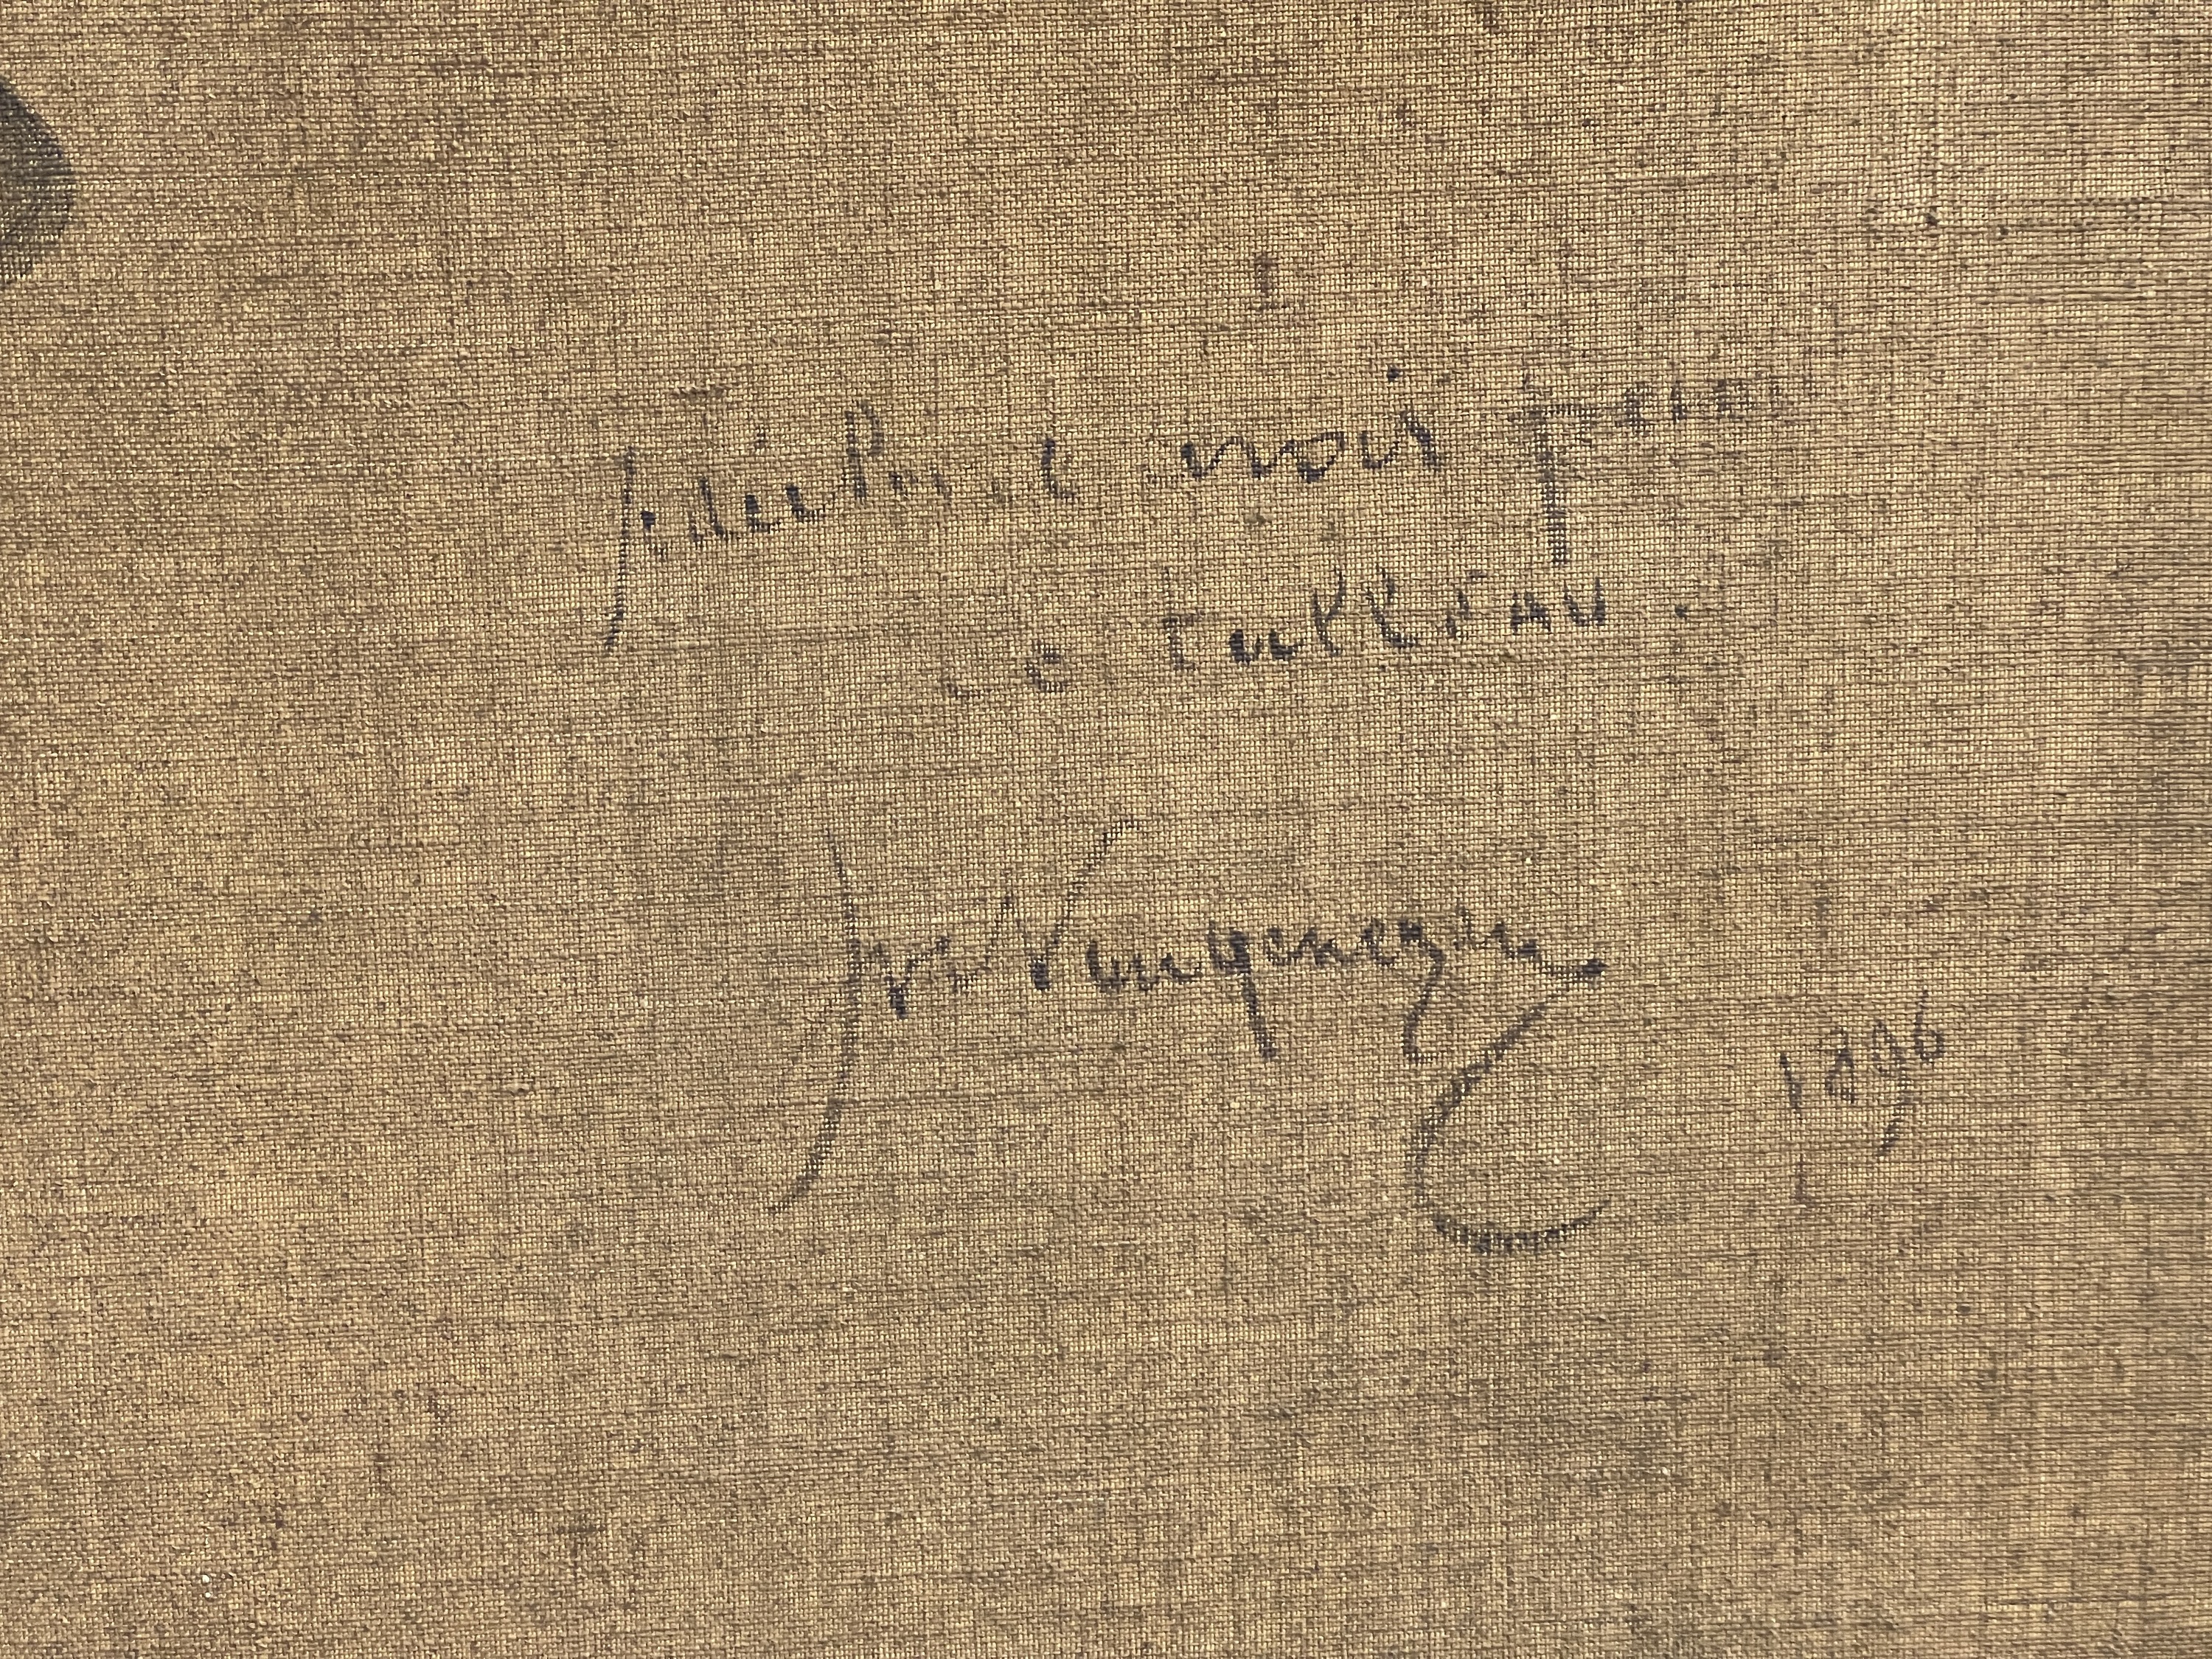 je déclare avoir peint
ce tableau.
Jve Vengenezen
1896